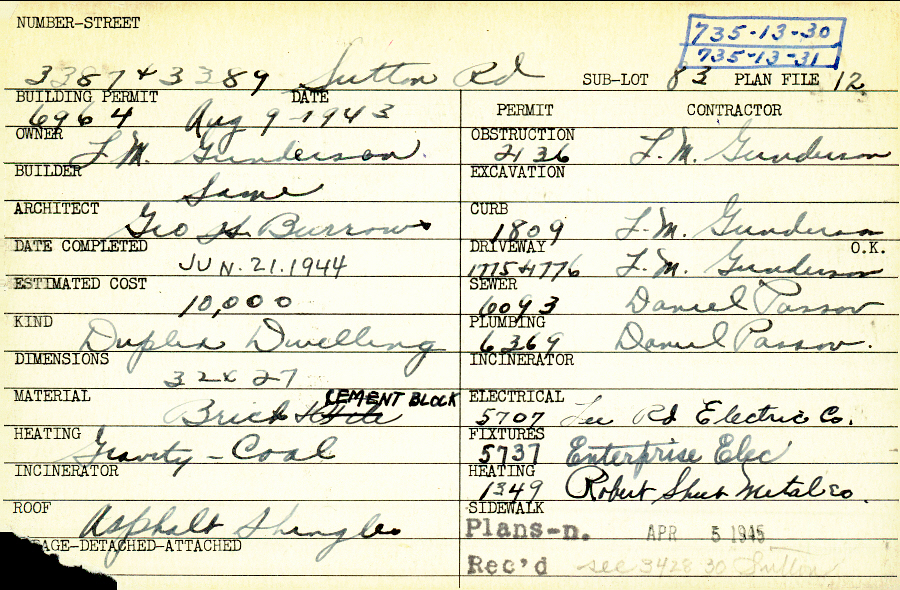 NUMBER-STREET
735-13-30
735-13-31
3387 & 3389 Sutton Rd SUB-LOT 83 PLAN FILE 12
BUILDING PERMIT DATE
6964 Aug 9-1943
OWNER
F.M. Gunderson
BUILDER
Same
ARCHITECT
Geo H. Burrows
DATE COMPLETED
JUN.21.1944
ESTIMATED COST
10,000
KIND
Duplex Dwelling
DIMENSIONS
32x27
MATERIAL
CEMENT BLOCK
Brick
HEATING
Gravity - Coal
INCINERATOR
ROOF
Asphalt Shingles
AGE-DETACHED-ATTACHED
PERMIT CONTRACTOR
OBSTRUCTION
2136 F.M. Gunderson
EXCAVATION
CURB
1809 F.M. Gunderson
DRIVEWAY O.K.
1775+1776 F.M. Gunderson
SEWER
6093 Daniel Passov
PLUMBING
6369 Daniel Passov.
INCINERATOR
ELECTRICAL
5707 Lee Rd Electric Co.
FIXTURES
5737 Enterprise Elec
HEATING
1349 Robert Sheet Metal Co.
SIDEWALK
Plans-n. APR 5 1945
Rec'd see 3428 30 Sutton